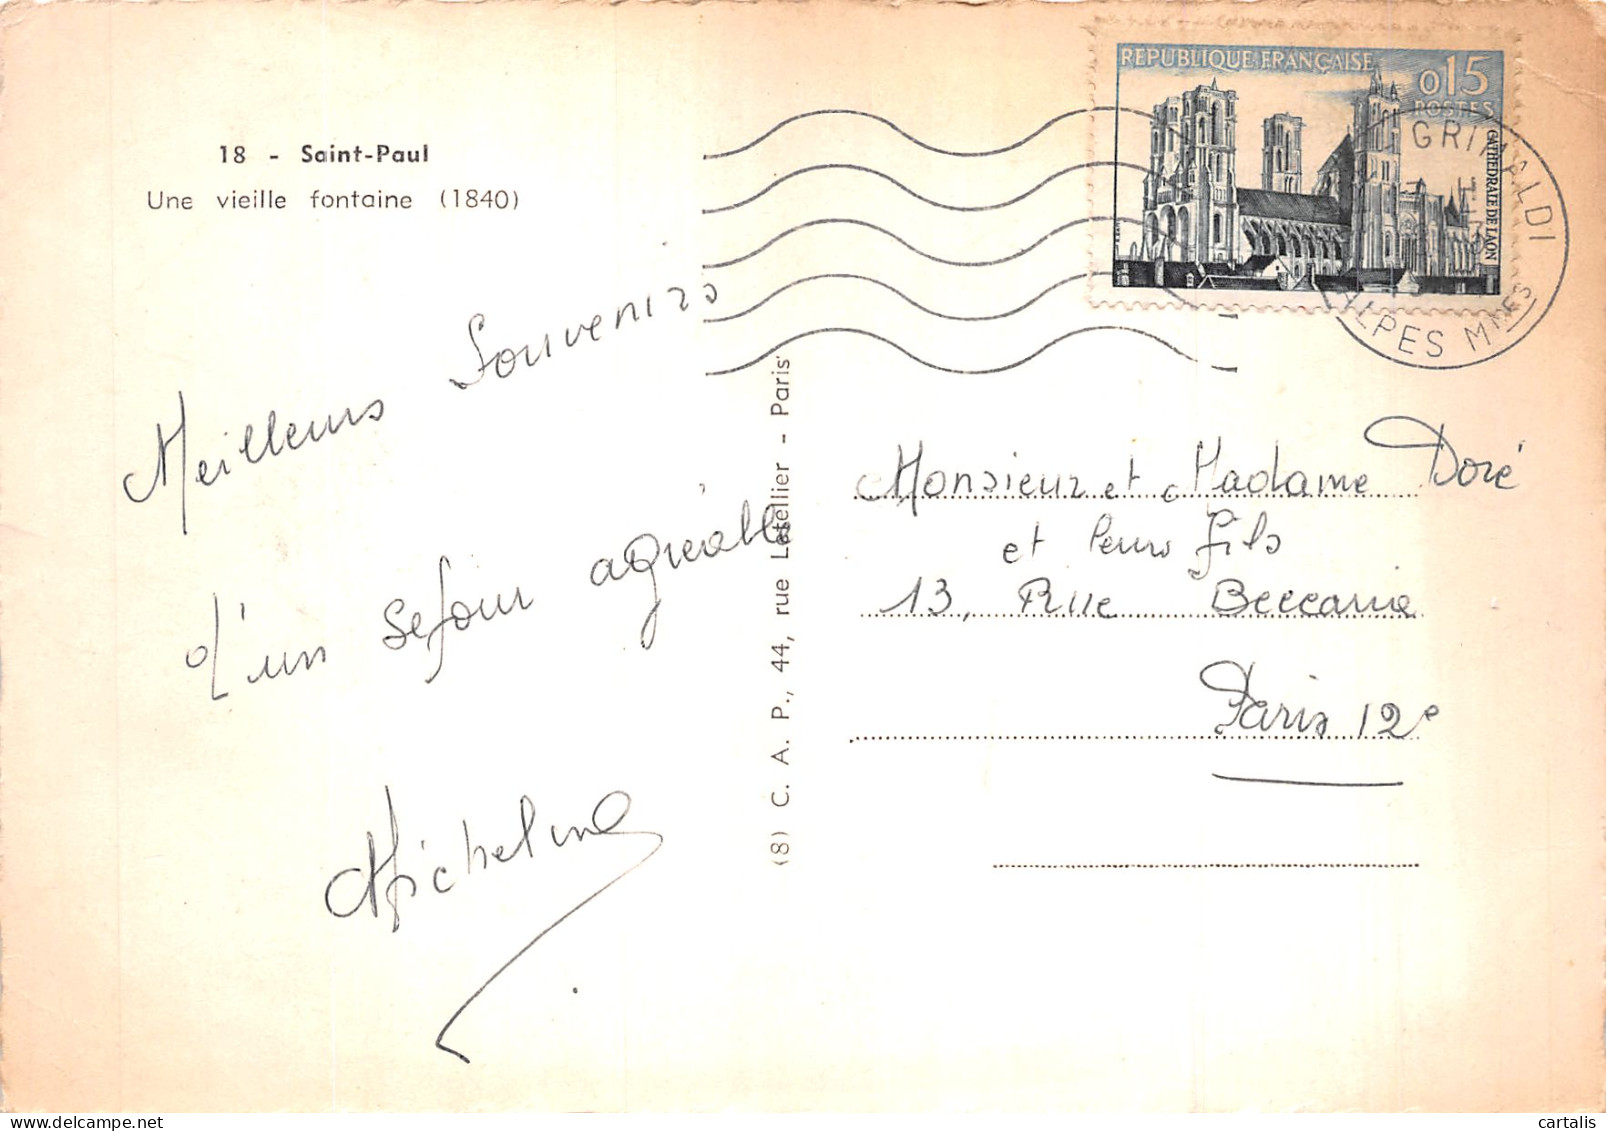 18 - Saint-Paul
Une vieille fontaine (1840)
Meilleurs Souvenirs
d'un séjour agréable
Micheline
(8) C. A. P., 44, rue Letellier - Paris
REPUBLIQUE FRANÇAISE
0,15
POSTES
CATHEDRALE DE LAON
GRIMALDI
ALPES MMES
Monsieur et Madame Doré
et leurs fils
13, Rue Beccaria
Paris 12e
cartalis